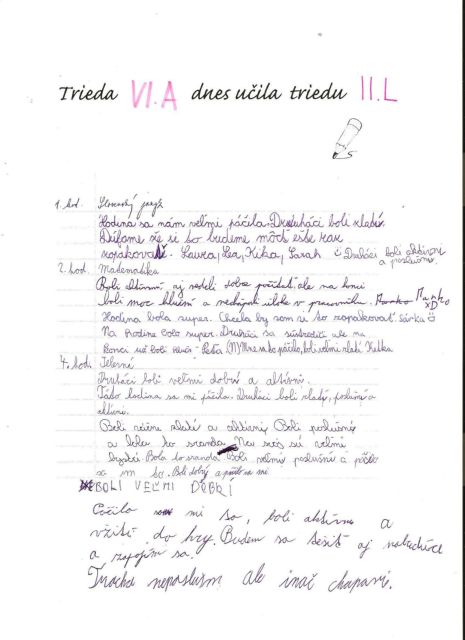 Trieda VI.A dnes učila triedu II.L
1. hod. Slovenský jazyk
Hodina sa nám veľmi páčila. Druháci boli zlatí.
Dúfame že si to budeme môcť ešte raz
zopakovať. Laura, Lea, Kika, Sarah Druháci boli aktívny
a poslušný.
2. hod. Matematika
Boli aktívny, aj vedeli toho počítať, ale na konci
boli moc hluční a nechápali úlohe v pracovníku. Manko
XD
Hodina bola super. Chcela by som si to zopakovať Sárka
Na hodine bolo super. Druháci sa sústredili ale na
konci už boli Peťa (N) Mne sa to páčilo, boli veľmi zlatí Kejka
4. hod. Telesná
Druháci boli veľmi dobrí a aktívni.
Táto hodina sa mi páčila. Druháci boli zlatí, poslušní a
aktívni.
Boli veľmi zlatí a aktívny Boli poslušný
a bola to sranda. Na sú veľmi
bystrí Bola to sranda Boli veľmi poslušní a páčilo
sa im to. Boli dobrý a páčilo sa mi.
BOLI VEĽMI DOBRÍ
Páčilo mi sa, boli aktívni a
vžití do hry. Budem sa tešiť aj nabudúce
a zapojím sa.
Trocha neposlušní ale inač chápaví.